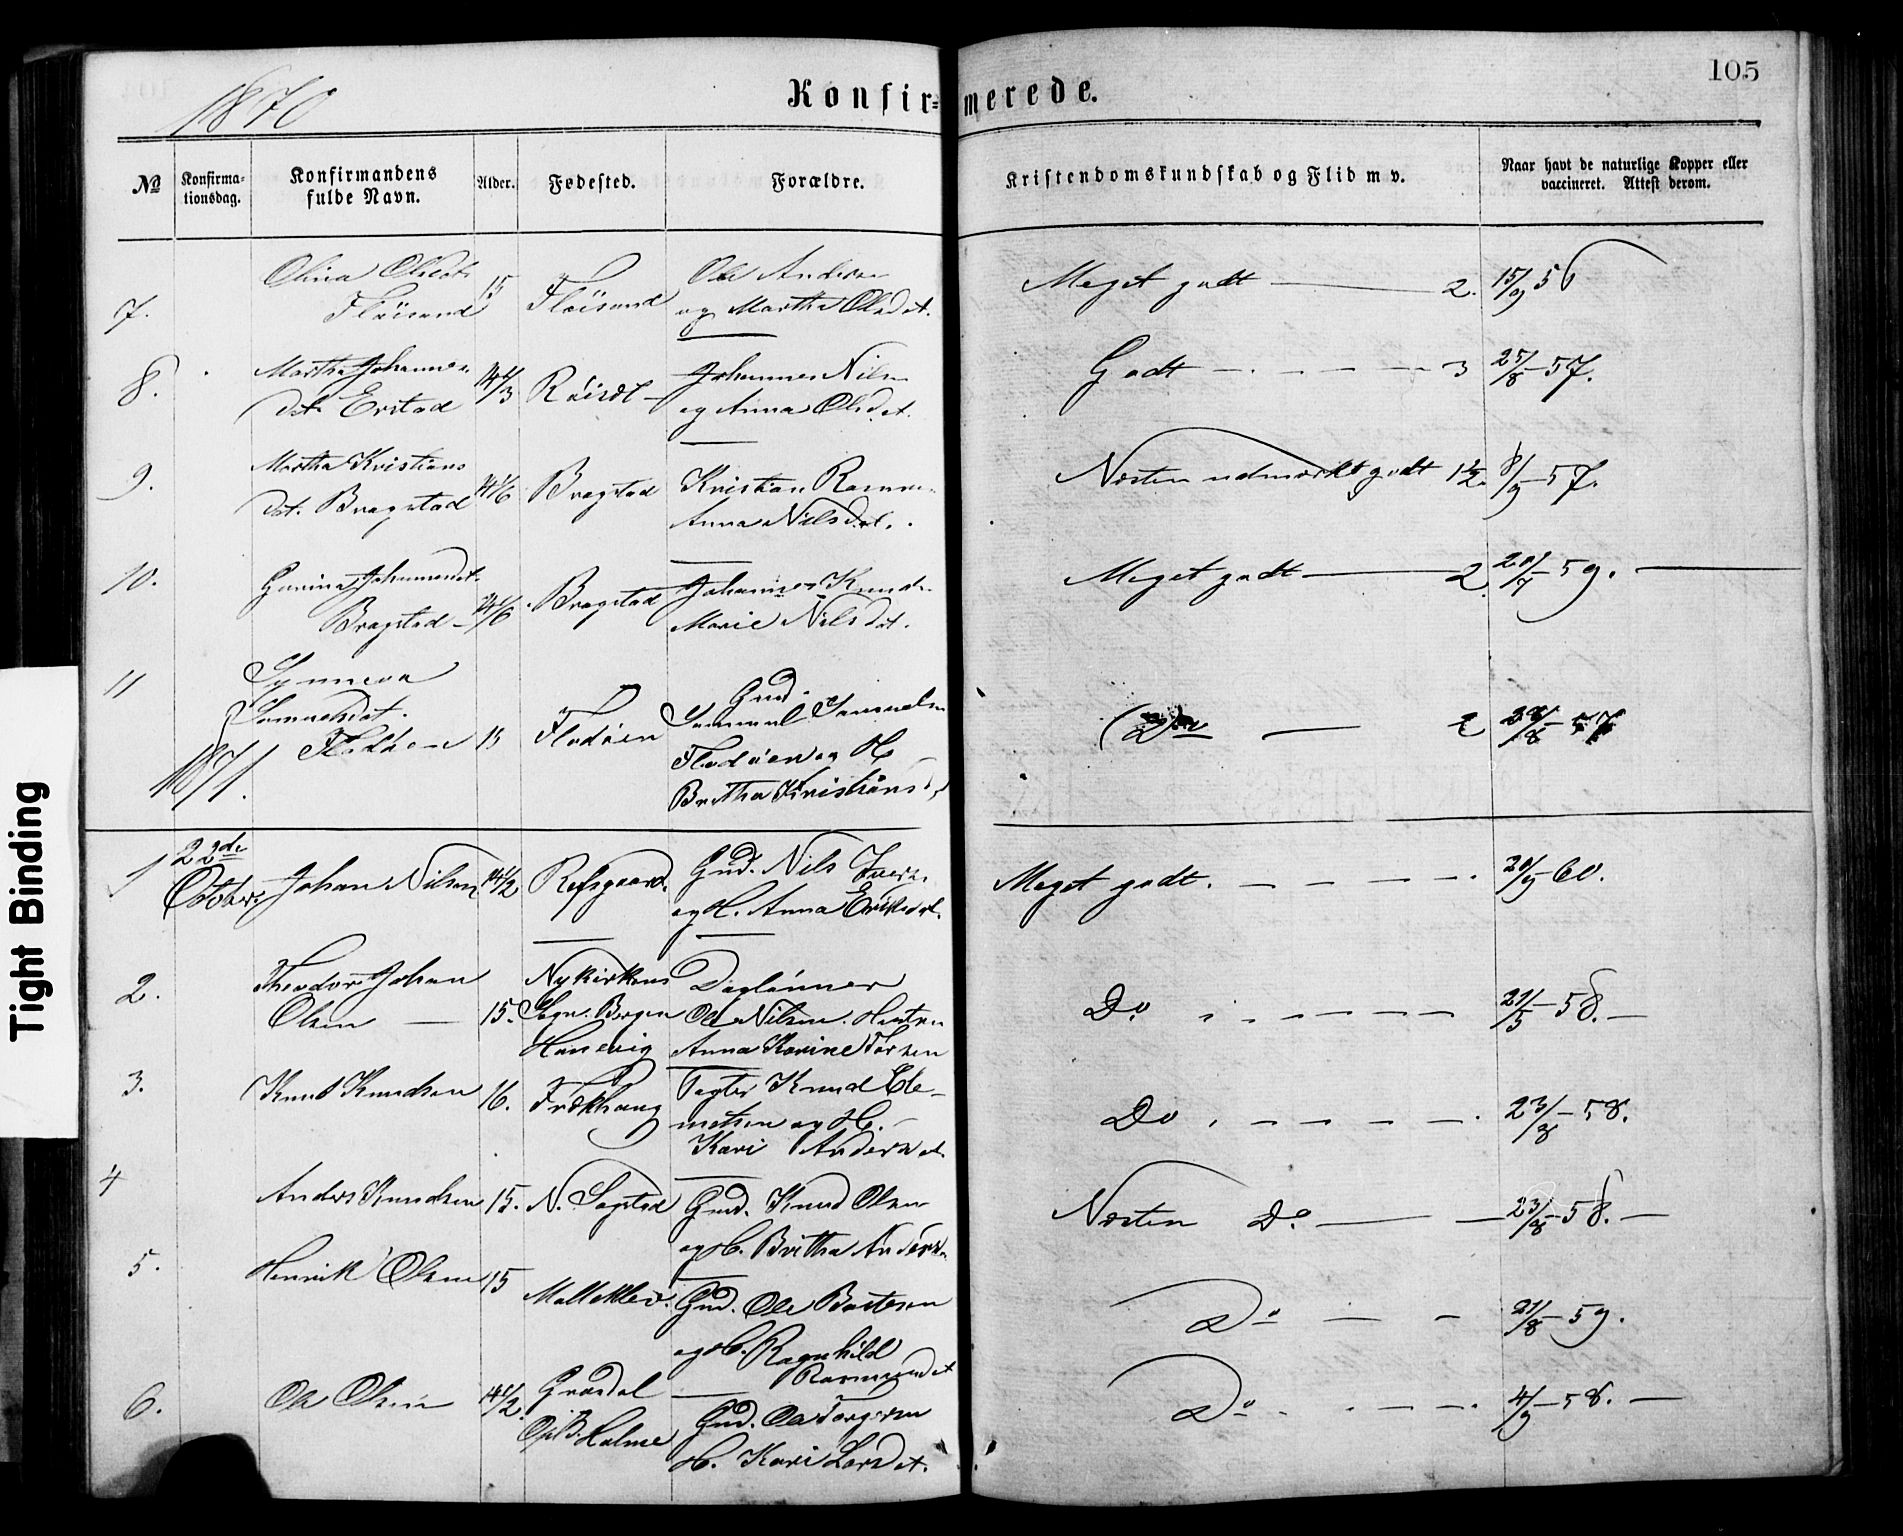 105
1870
Konfirmerede.
No
Konfirma-
tionsdag.
Konfirmandens
fulde Navn.
Alder.
Fødested.
Forældre.
Kristendomskundskab og Flid m v.
Naar havt de naturlige Kopper eller
vaccineret. Attest derom.
7.
Olina Olsdt.
Fløisand
15
Fløisand
Ole Anders
og Martha Olsdat.
Meget godt 2. 15/9 56
8.
Martha Johannes
dat. Erstad
14 1/3
Johannes Nils
og Anna Olsdat.
Godt 3 25/8 - 57.
9.
Martha Kristians
dat. Bragstad
14 1/6
Bragstad
Kristian Rasmus
Anna Nilsdat.
Næsten udmærket godt 1 1/2. 8/9 - 57.
10.
Johannesdat.
Bragstad
14 1/6
Bragstad
Johannes Knuds
Marie Nilsdat.
Meget godt 2. 59.
11
Synneva
Samuelsdat.
Flatøen
15
Flatøen
Gmd.
Samuel Samuels
Flatøen og H
Britha Kristians
Do 2 28/8 57
1871.
1
22de
October
Johan Nilsen
14 1/2
Refsgaard.
Gmd. Nils Ivers
og H. Anna Eriksdat.
Meget godt. 60.
2.
Theodor Johan
Olsen
15.
Nykirkens
Sogn. Bergen
Hanevig
Daglønner
Ole Nilsen. Hustru
Anna Karine
Do. 21/5 - 58.
3.
Knud Knudsen
16.
Frækhaug
Knud Cle-
metsen og H.
Kari Andersdat.
Do 23/8 - 58.
4
Anders Knudsen
15.
N. Sagstad
Gmd. Knud Olsen
og H. Britha Anders
Næsten Do. 23/8 - 58.
5.
Henrik Olsen
15
Gmd. Ole
og H. Ragnhild
Rasmusdat
Do 21/8 - 59.
6.
Ole Olsen
14 1/2.
Græsdal
Holme
Gmd. Ole Torgersen
H. Kari Larsdat.
Do 4/9 - 58.
Tight Binding